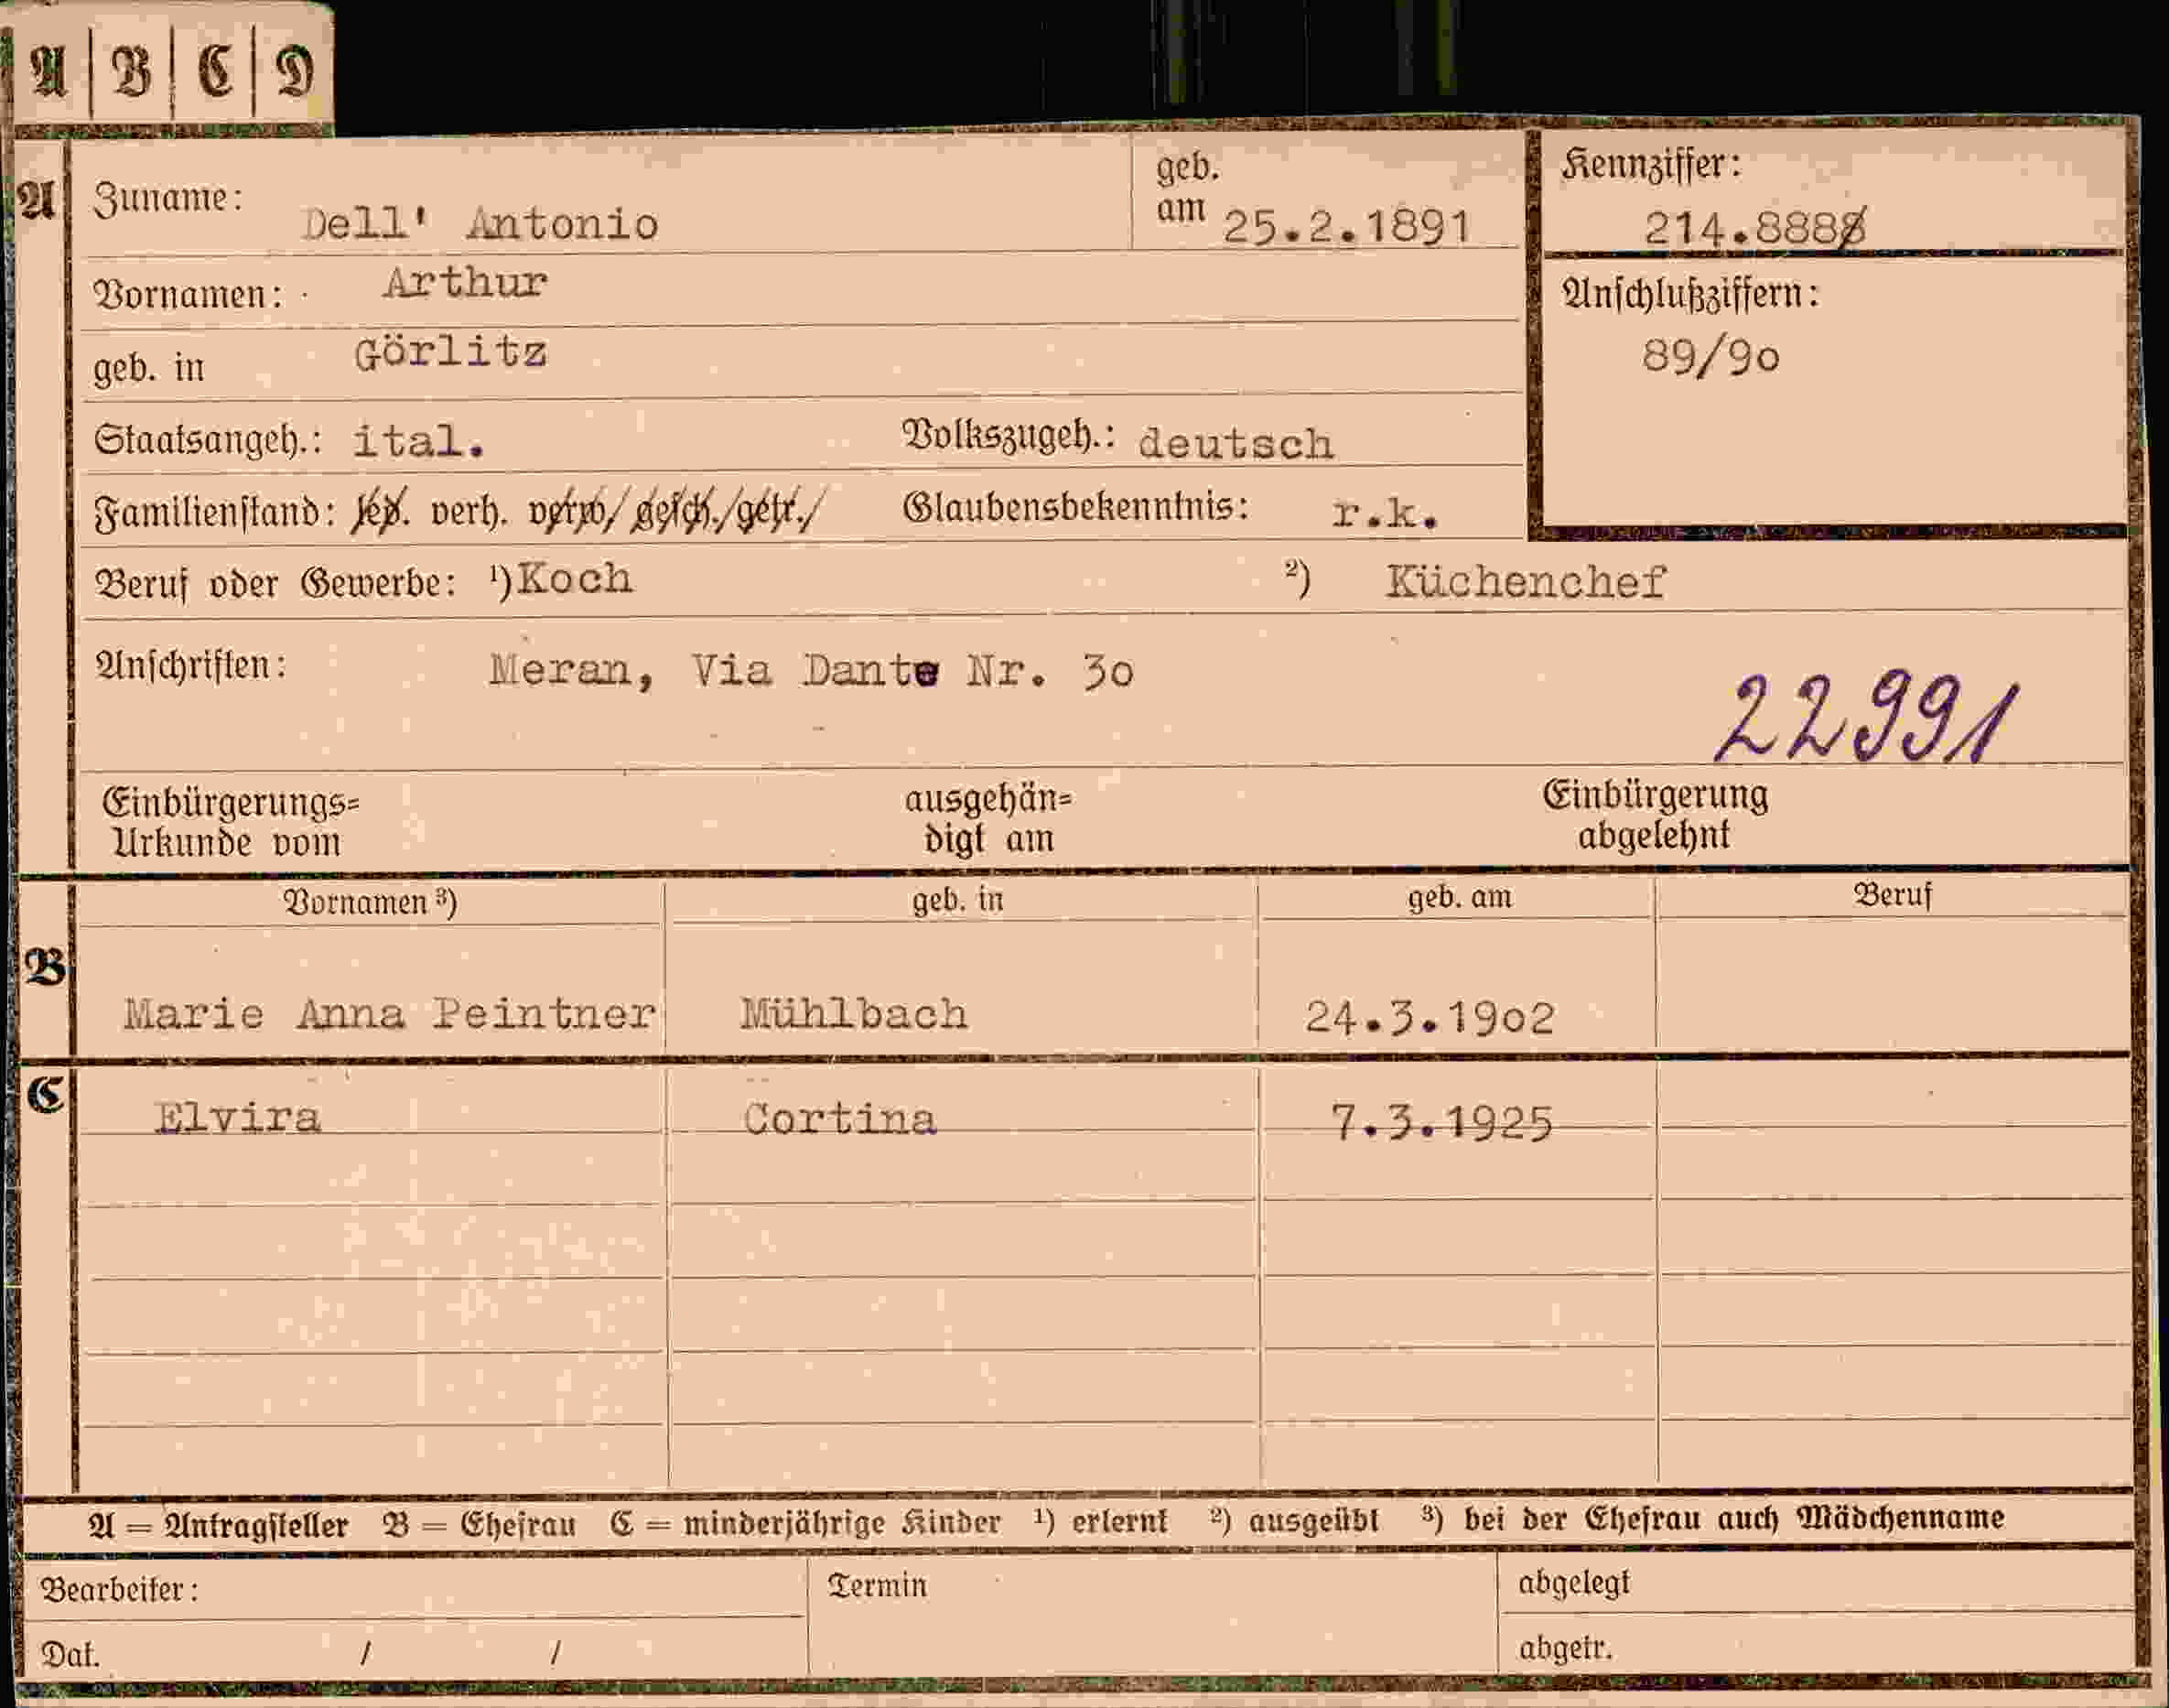 A | B | C | D
A Zuname: Dell' Antonio geb. am 25.2.1891 Kennziffer: 214.8888
Vornamen: Arthur Anschlußziffern: 89/90
geb. in Görlitz
Staatsangeh.: ital. Volkszugeh.: deutsch
Familienstand: led. verh. verw./gesch./getr./ Glaubensbekenntnis: r.k.
Beruf oder Gewerbe: ¹) Koch ²) Küchenchef
Anschriften: Meran, Via Dante Nr. 30
22991
Einbürgerungs= Urkunde vom ausgehän= digt am Einbürgerung abgelehnt
Vornamen ³) geb. in geb. am Beruf
B Marie Anna Peintner Mühlbach 24.3.1902
C Elvira Cortina 7.3.1925
A = Antragsteller B = Ehefrau C = minderjährige Kinder ¹) erlernt ²) ausgeübt ³) bei der Ehefrau auch Mädchenname
Bearbeiter: Termin abgelegt
Dat. / / abgetr.